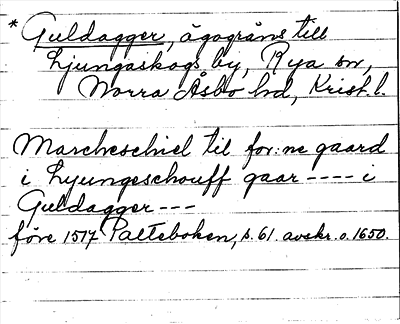 * Guldagger, ägogräns till
Ljungaskogs by, Rya sn,
Norra Åsbo hd, Krist.l.
Marcheschiel til for:ne gaard
i Lyungeschouff gaar ---- i
Guldagger ---
före 1517 Palteboken, s. 61. avskr. o. 1650.